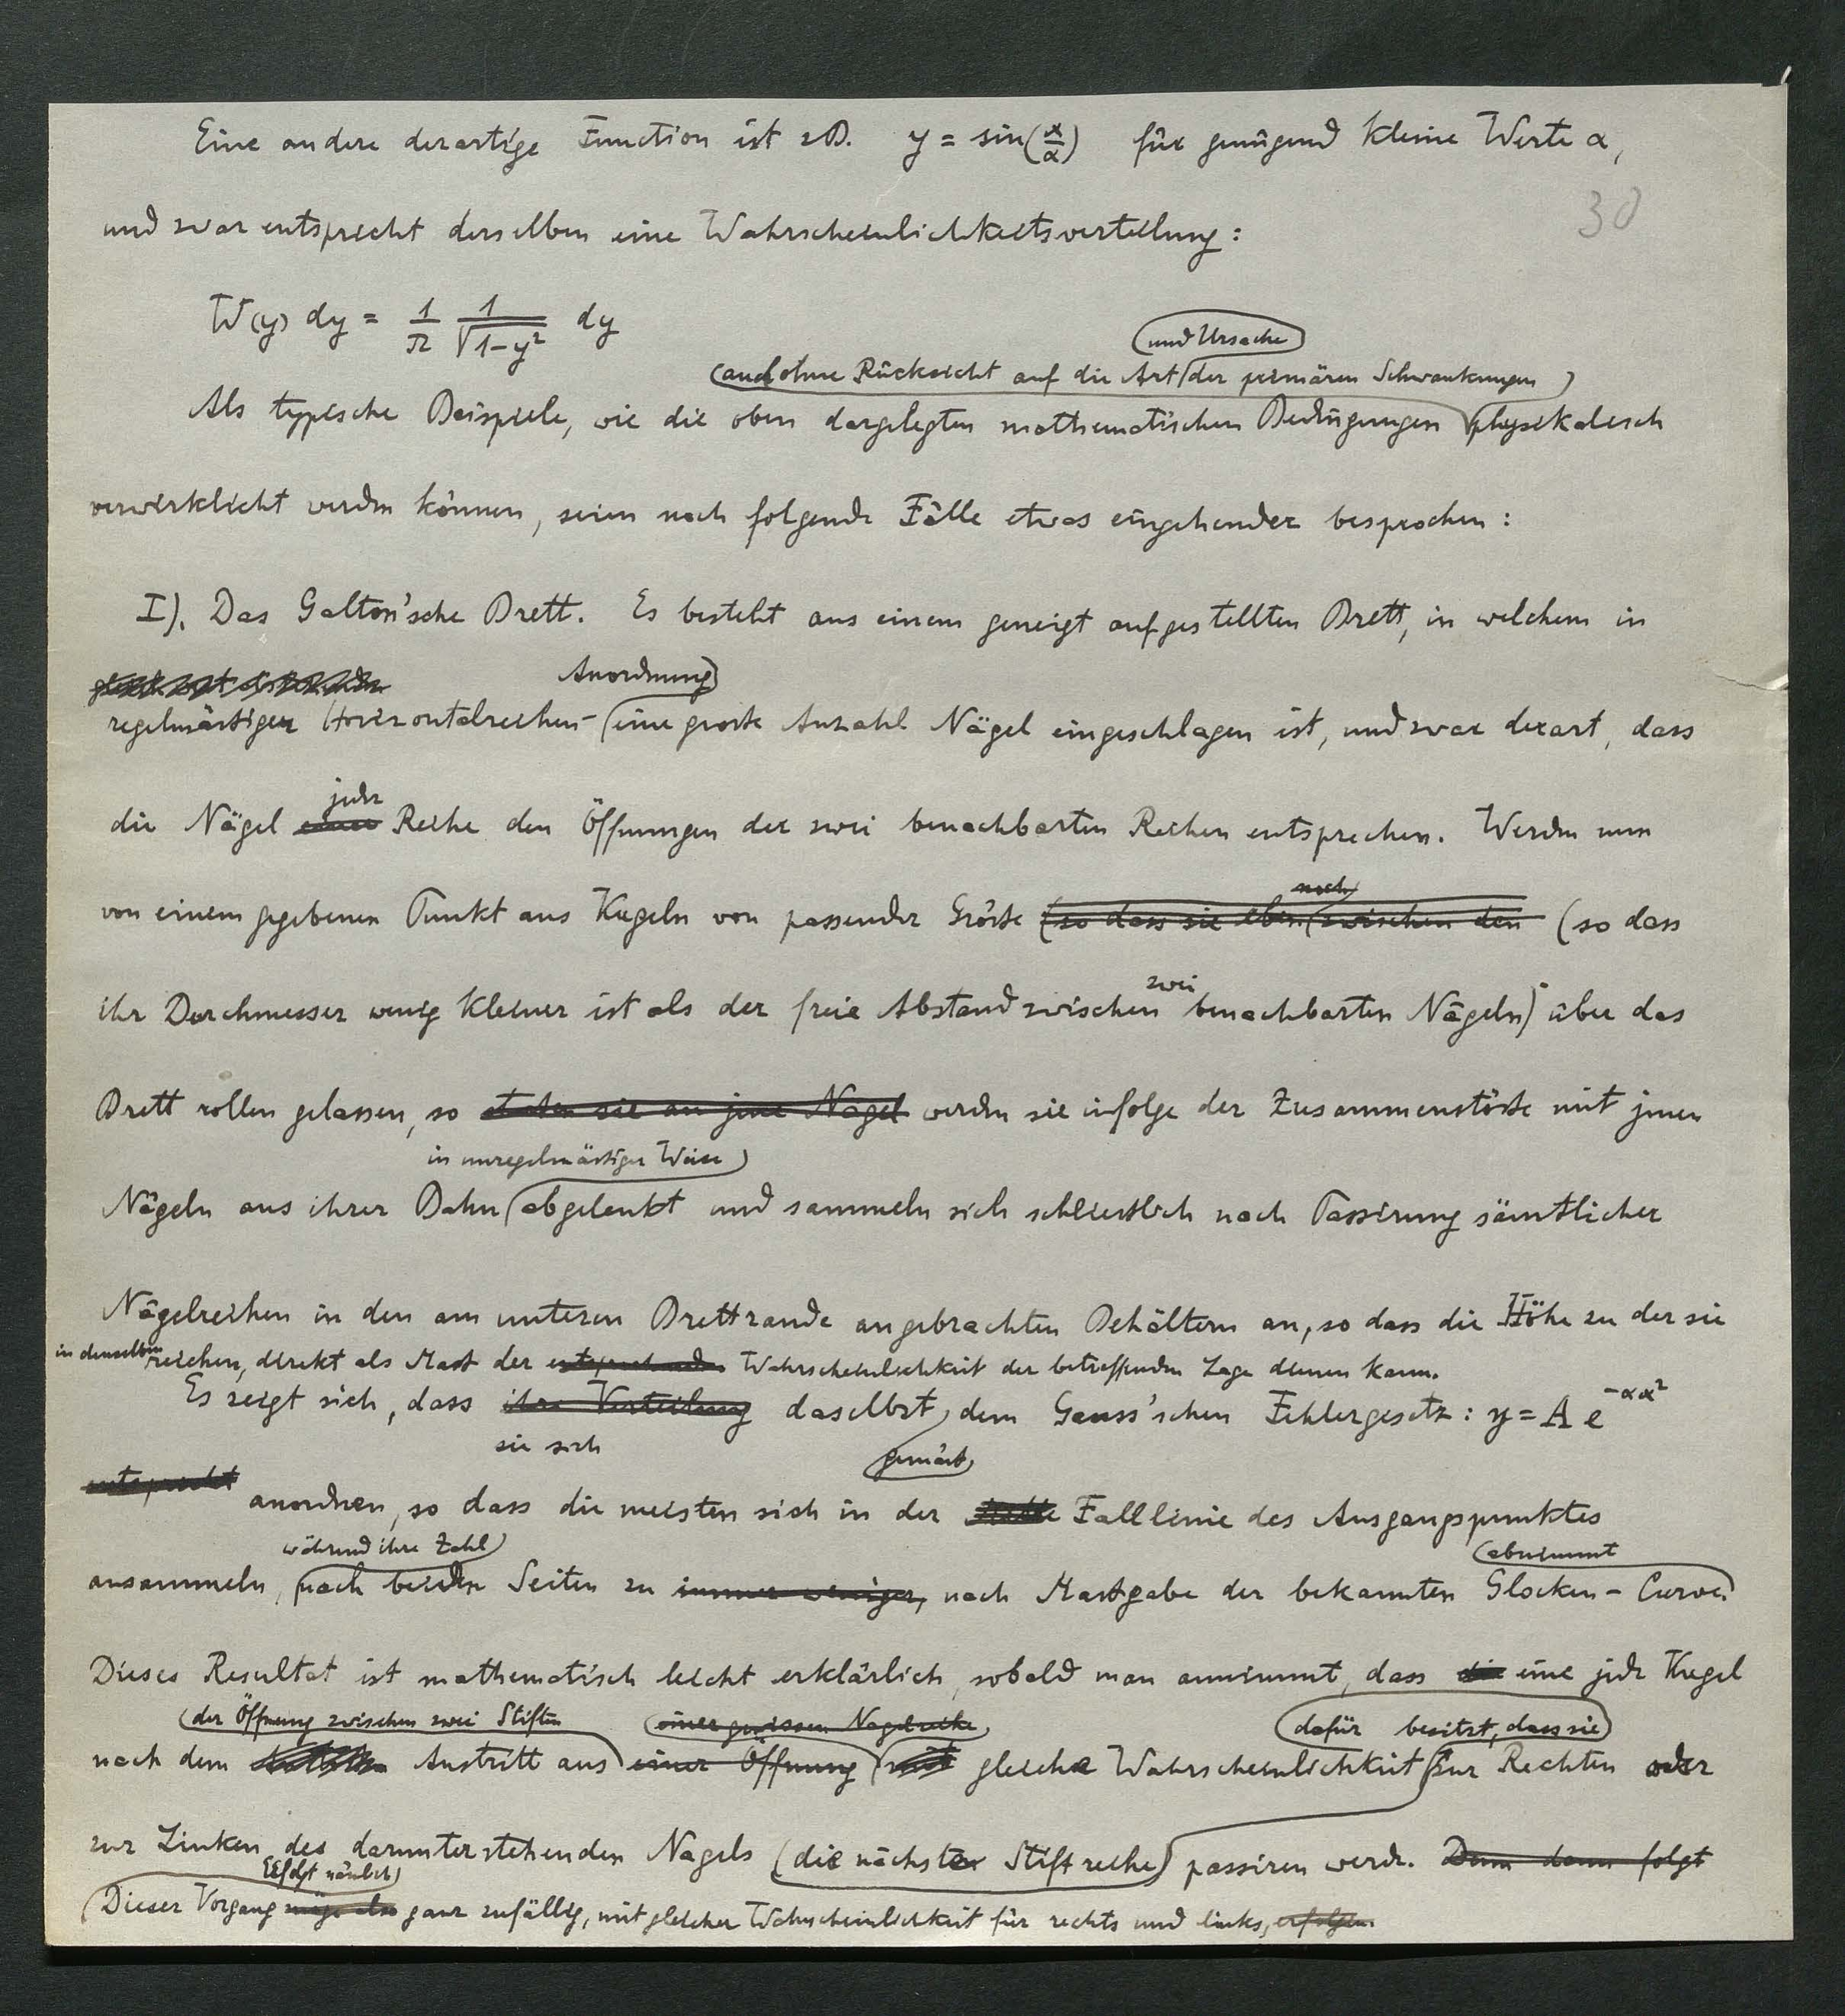 Eine andere derartige Function ist zB. y = sin(x/α) für genügend kleine Werte α,
30
und zwar entspricht derselben eine Wahrscheinlichkeitsverteilung:
W(y) dy = 1/π 1/√(1-y²) dy
und Ursache
(auch ohne Rücksicht auf die Art der primären Schwankungen)
Als typische Beispiele, wie die oben dargelegten mathematischen Bedingungen physikalisch
verwirklicht werden können, seien noch folgende Fälle etwas eingehender besprochen:
I). Das Galton'sche Brett. Es besteht aus einem geneigt aufgestellten Brett, in welchem in
Anordnung
regelmässiger Horizontalreihen- eine grosse Anzahl Nägel eingeschlagen ist, und zwar derart, dass
jeder
die Nägel einer Reihe den Öffnungen der zwei benachbarten Reihen entsprechen. Werden nun
noch
von einem gegebenen Punkt aus Kugeln von passender Grösse (so dass sie eben zwischen den (so dass
zwei
ihr Durchmesser wenig kleiner ist als der freie Abstand zwischen benachbarten Nägeln) über das
Brett rollen gelassen, so stossen sie an jene Nägel werden sie infolge der Zusammenstösse mit jenen
in unregelmässiger Weise
Nägeln aus ihrer Bahn abgelenkt und sammeln sich schliesslich nach Passirung sämtlicher
Nägelreihen in den am unteren Brettrande angebrachten Behältern an, so dass die Höhe zu der sie
in denselben reichen, direkt als Mass der entsprechenden Wahrscheinlichkeit der betreffenden Lage dienen kann.
Es zeigt sich, dass ihre Verteilung daselbst dem Gauss'schen Fehlergesetz: y = A e^{-αx²}
sie sich gemäss
entspricht anordnen, so dass die meisten sich in der Falllinie des Ausgangspunktes
während ihre Zahl abnimmt
ansammeln, nach beiden Seiten zu immer weniger, nach Massgabe der bekannten Glocken-Curve.
Dieses Resultat ist mathematisch leicht erklärlich, sobald man annimmt, dass die eine jede Kugel
der Öffnung zwischen zwei Stiften einer gewissen Nagelreihe dafür besitzt, dass sie
nach dem Austritt aus einer Öffnung mit gleiche Wahrscheinlichkeit zur Rechten oder
zur Linken des darunterstehenden Nagels (die nächste Stiftreihe) passiren werde. Denn dann folgt
erfolgt nämlich
Dieser Vorgang möge also ganz zufällig, mit gleicher Wahrscheinlichkeit für rechts und links, erfolgen.